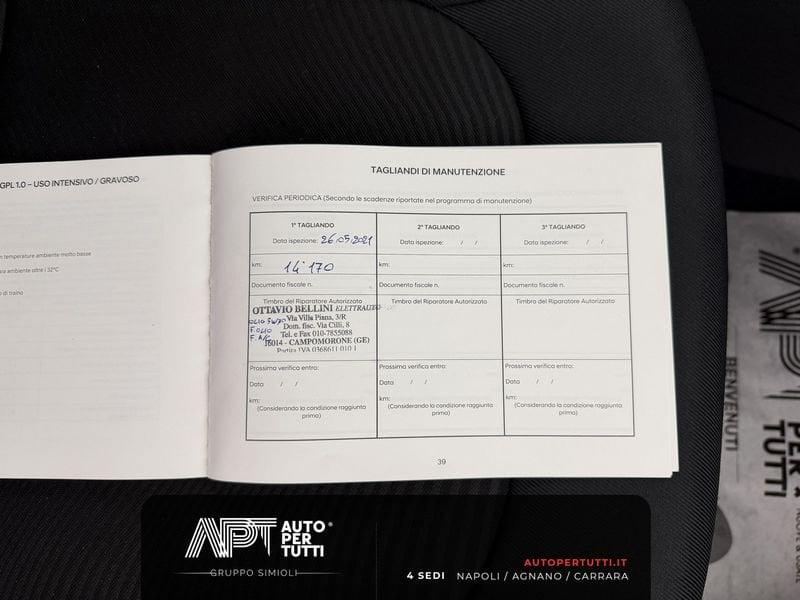 GPL 1.0 – USO INTENSIVO / GRAVOSO
n temperature ambiente molto basse
ra ambiente oltre i 32°C
o di traino
TAGLIANDI DI MANUTENZIONE
VERIFICA PERIODICA (Secondo le scadenze riportate nel programma di manutenzione)
1° TAGLIANDO
Data ispezione: 26/05/2021
km: 14'170
Documento fiscale n.
Timbro del Riparatore Autorizzato
OTTAVIO BELLINI ELETTRAUTO
Via Villa Piana, 3/R
Dom. fisc. Via Cilli, 8
Tel. e Fax 010-7855088
16014 - CAMPOMORONE (GE)
Partita IVA 0368611 010 1
OLIO 5W30
F. OLIO
F. A/C
Prossima verifica entro:
Data / /
km:
(Considerando la condizione raggiunta
prima)
2° TAGLIANDO
Data ispezione: / /
km:
Documento fiscale n.
Timbro del Riparatore Autorizzato
Prossima verifica entro:
Data / /
km:
(Considerando la condizione raggiunta
prima)
3° TAGLIANDO
Data ispezione: / /
km:
Documento fiscale n.
Timbro del Riparatore Autorizzato
Prossima verifica entro:
Data / /
km:
(Considerando la condizione raggiunta
prima)
39
BENVENUTI
PER
TUTTI
APT AUTO
PER
TUTTI
GRUPPO SIMIOLI
AUTOPERTUTTI.IT
4 SEDI NAPOLI / AGNANO / CARRARA